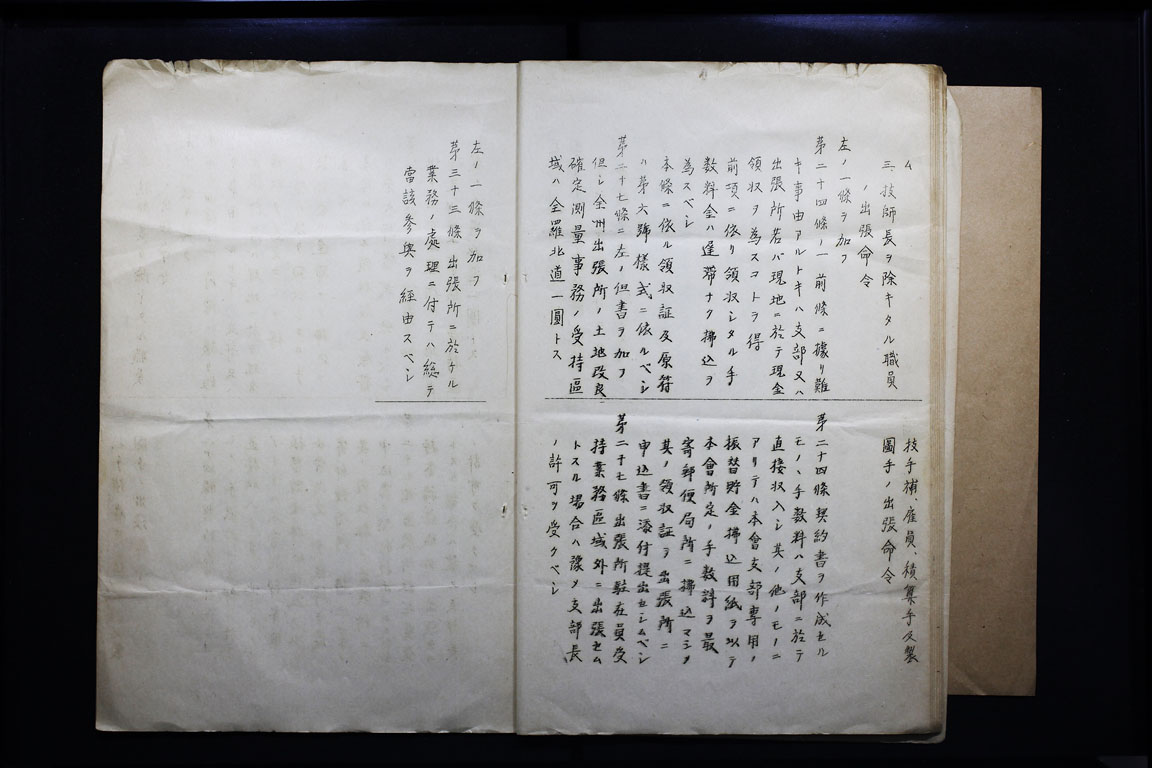 ム
三、技師長ヲ除キタル職員
ノ出張命令
左ノ一條ヲ加フ
第二十四條ノ一 前條ニ據リ難
キ事由アルトキハ支部又ハ
出張所若バ現地ニ於テ現金
領収ヲ為スコトヲ得
前項ニ依リ領収シタル手
数料金ハ遅滞ナク拂込ヲ
為スベシ
本條ニ依ル領収証及原符
ハ第六號様式ニ依ルベシ
第二十七條ニ左ノ但書ヲ加フ
但シ全州出張所ノ土地改良
確定測量事務ノ受持區
域ハ全羅北道一圓トス
技手補、雇員、積算手及製
圖手ノ出張命令
第二十四條契約書ヲ作成セル
モノヽ手数料ハ支部ニ於テ
直接収入シ其ノ他ノモノニ
アリテハ本會支部専用ノ
振替貯金拂込用紙ヲ以テ
本會所定ノ手数料ヲ最
寄郵便局所ニ拂込マシメ
其ノ領収証ヲ出張所ニ
申込書ニ添付提出セシムベシ
第二十七條出張所駐在員受
持業務區域外ニ出張セム
トスル場合ハ豫メ支部長
ノ許可ヲ受クベシ
左ノ一條ヲ加フ
第三十三條 出張所ニ於ケル
業務ノ處理ニ付テハ総テ
當該参與ヲ経由スベシ